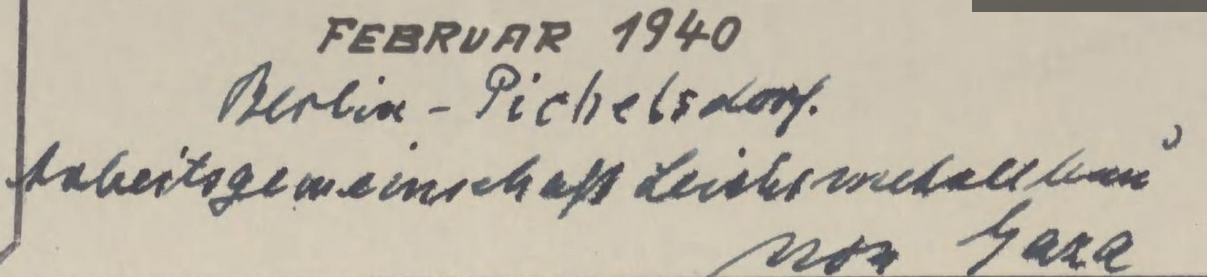 FEBRUAR 1940
Berlin - Pichelsdorf.
Arbeitsgemeinschaft Leichtmetallbau
von Gaza